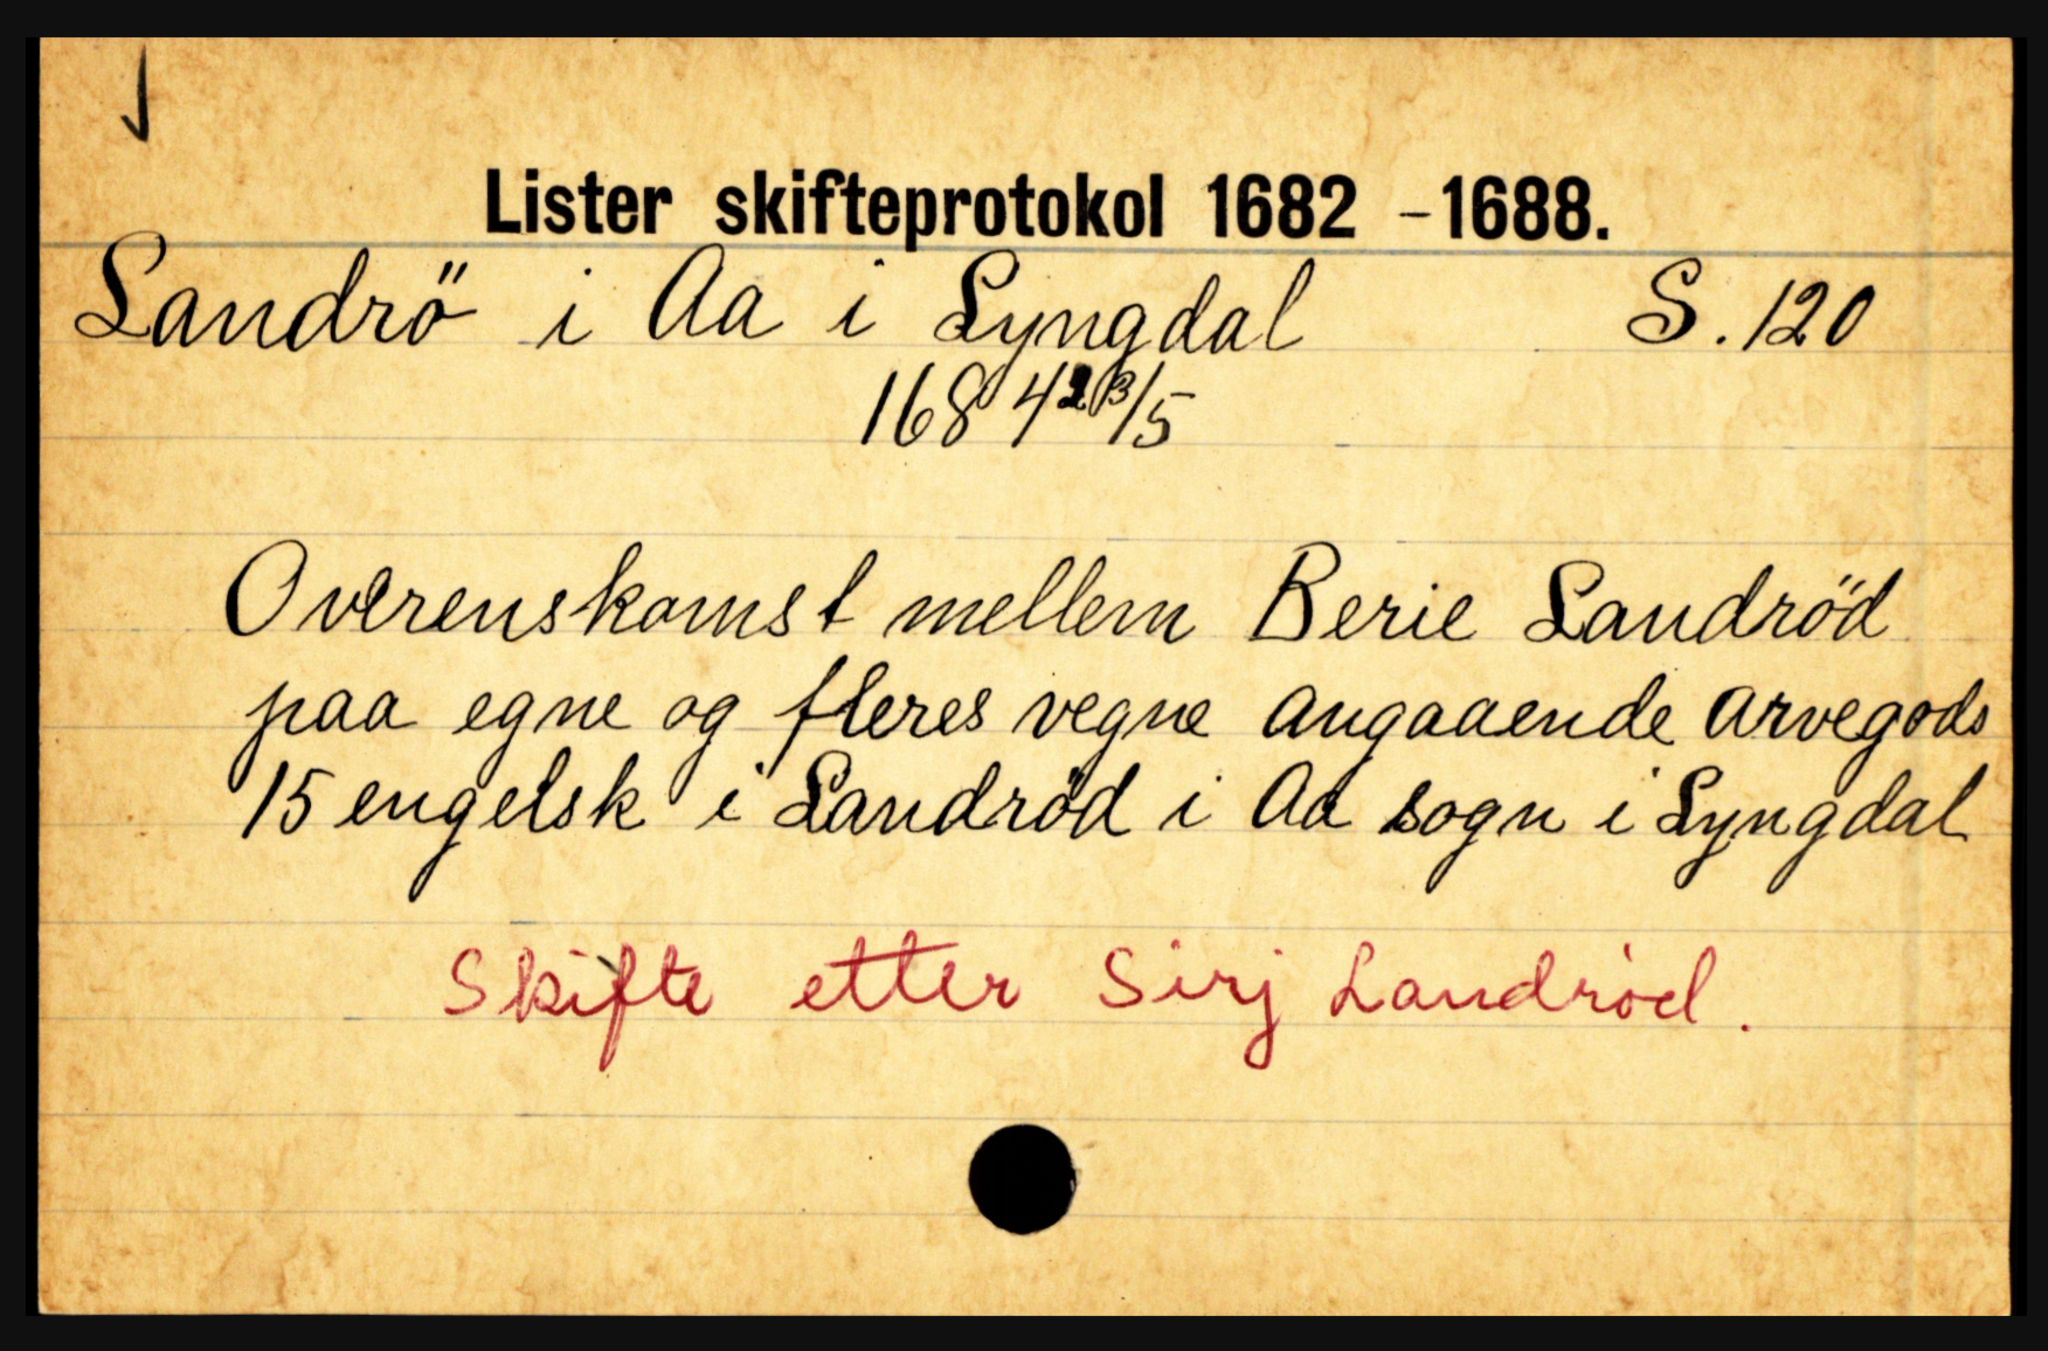 Lister skifteprotokol 1682 - 1688.
Landrö i Aa i Lyngdal S. 120
1684 /5
Overenskomst mellem Berie Landröd
paa egne og fleres vegne angaaende arvegods
15 engelsk i Landröd i Aa sogn i Lyngdal
Skifte etter Sirj Landröd.